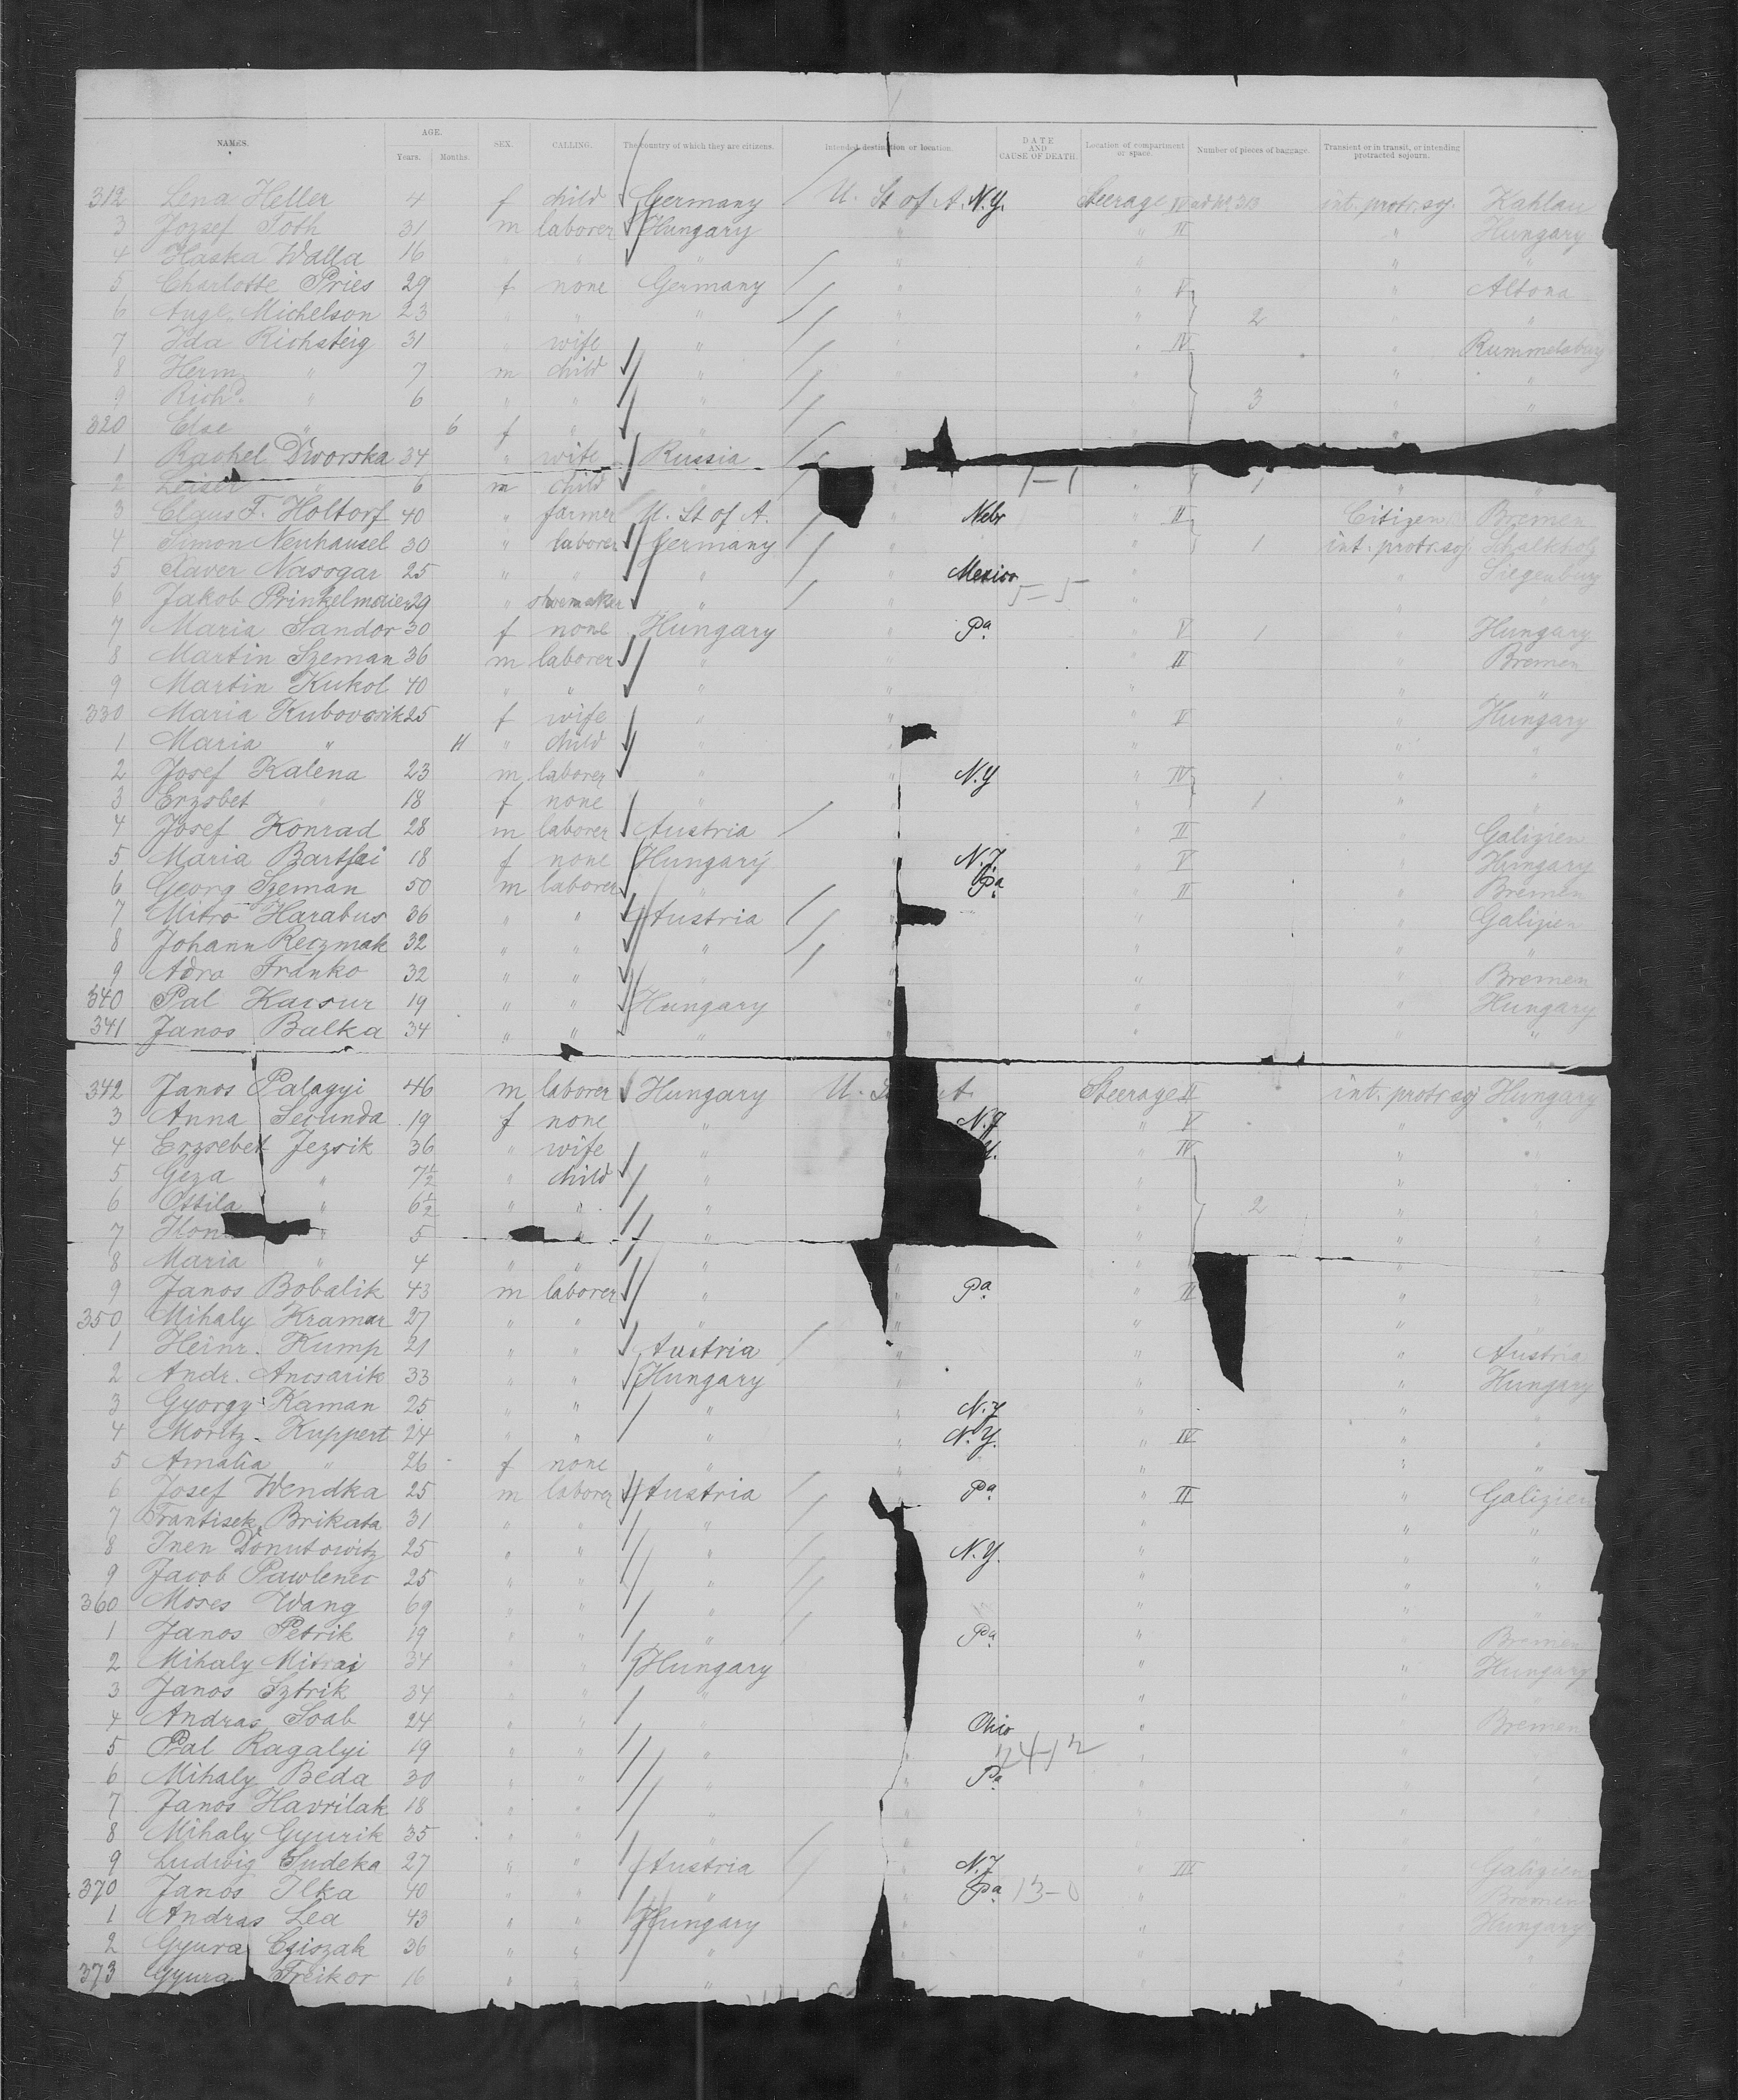 NAMES. AGE. Years. Months. SEX. CALLING. The country of which they are citizens. Intended destination or location. DATE AND CAUSE OF DEATH. Location of compartment or space. Number of pieces of baggage. Transient or in transit, or intending protracted sojourn.
312 Lena Heller 4 f child Germany U. St of A. N.Y. Steerage int. protr. soj. Kahlau
3 Jozsef Toth 31 m laborer Hungary " " II " Hungary
4 Haska Walla 16 " " " " " " "
5 Charlotte Pries 29 f none Germany " " V " Altona
6 Auge. Michelson 23 " " " " " 2 " "
7 Ida Richsteig 31 " wife " " " IV " Rummelsburg
8 Herm. " 7 m child " " " "
9 Richd. " 6 " " " 3 " "
320 Else " 6 f " " " "
1 Rachel Dworska 34 " wife Russia
2 Leiser " 6 m child " 1-1 " 1 " "
3 Claus F. Holtorf 40 " farmer U. St of A. " Nebr " II Citizen Bremen
4 Simon Neuhausel 30 " laborer Germany " " 1 int. protr. soj. Schalkholz
5 Xaver Nasogar 25 " " " " Mexico " " Siegenburg
6 Jakob Brinkelmeier 29 " shoemaker " " 5-5 " " "
7 Maria Sandor 30 f none Hungary " Pa. " V 1 " Hungary
8 Martin Szeman 36 m laborer " " " II " Bremen
9 Martin Kukol 40 " " " " " " "
330 Maria Kubovcsik 25 f wife " " " V " Hungary
1 Maria " 11 " child " " " " "
2 Josef Kalena 23 m laborer " N.Y " IV " "
3 Erzsbet " 18 f none " " " 1 " "
4 Josef Konrad 28 m laborer Austria " " II " Galizien
5 Maria Bartfai 18 f none Hungary " N.J. " V " Hungary
6 Georg Szeman 50 m laborer " " Pa. " II " Bremen
7 Mitro Harabus 36 " " Austria " " " Galizien
8 Johann Reczmak 32 " " " " " " "
9 Adra Franko 32 " " " " " " Bremen
340 Pal Kacsur 19 " " Hungary " " " Hungary
341 Janos Balka 34 " " " " " " "
342 Janos Palagyi 46 m laborer Hungary U. S A. Steerage II int. protr. soj Hungary
3 Anna Secunda 19 f none " N.J " V " "
4 Erzsebet Jezsik 36 " wife " " IV " "
5 Geza " 7½ " child " " " "
6 Ottila " 6½ " " " " 2 " "
7 Ilon " 5 " " " " "
8 Maria " 4 " " " " " " "
9 Janos Bobalik 43 m laborer " " Pa. " II " "
350 Mihaly Kramar 27 " " " " " " "
1 Heinr. Kump 21 " " Austria " " " Austria
2 Andr. Ancsarik 33 " " Hungary " " " Hungary
3 Gyorgy Kaman 25 " " " " N.J " " "
4 Moritz Kuppert 24 " " " " N.Y. " IV " "
5 Amalia " 26 f none " " " " "
6 Josef Wendka 25 m laborer Austria " Pa. " II " Galizien
7 Frantisek Brikata 31 " " " " " "
8 Inen Donutowitz 25 " " " N.Y. " " "
9 Jacob Pawlenec 25 " " " " " "
360 Moses Wang 69 " " " " " "
1 Janos Petrik 19 " " " Pa. " " Bremen
2 Mihaly Mitrai 34 " " Hungary " " Hungary
3 Janos Sztrik 34 " " " " " "
4 Andras Soab 24 " " " Ohio " Bremen
5 Pal Ragalyi 19 " " " " " 24-12 "
6 Mihaly Beda 30 " " " " Pa. "
7 Janos Havrilak 18 " " " " "
8 Mihaly Gyurik 35 " " " " "
9 Ludwig Sudeka 27 " " Austria " N.J " III Galizien
370 Janos Ilka 40 " " " " Pa. 13-0 " Bremen
1 Andras Lea 43 " " Hungary " " Hungary
2 Gyura Cziszak 36 " " " " " " "
373 Gyura Freikor 16 " " " " "